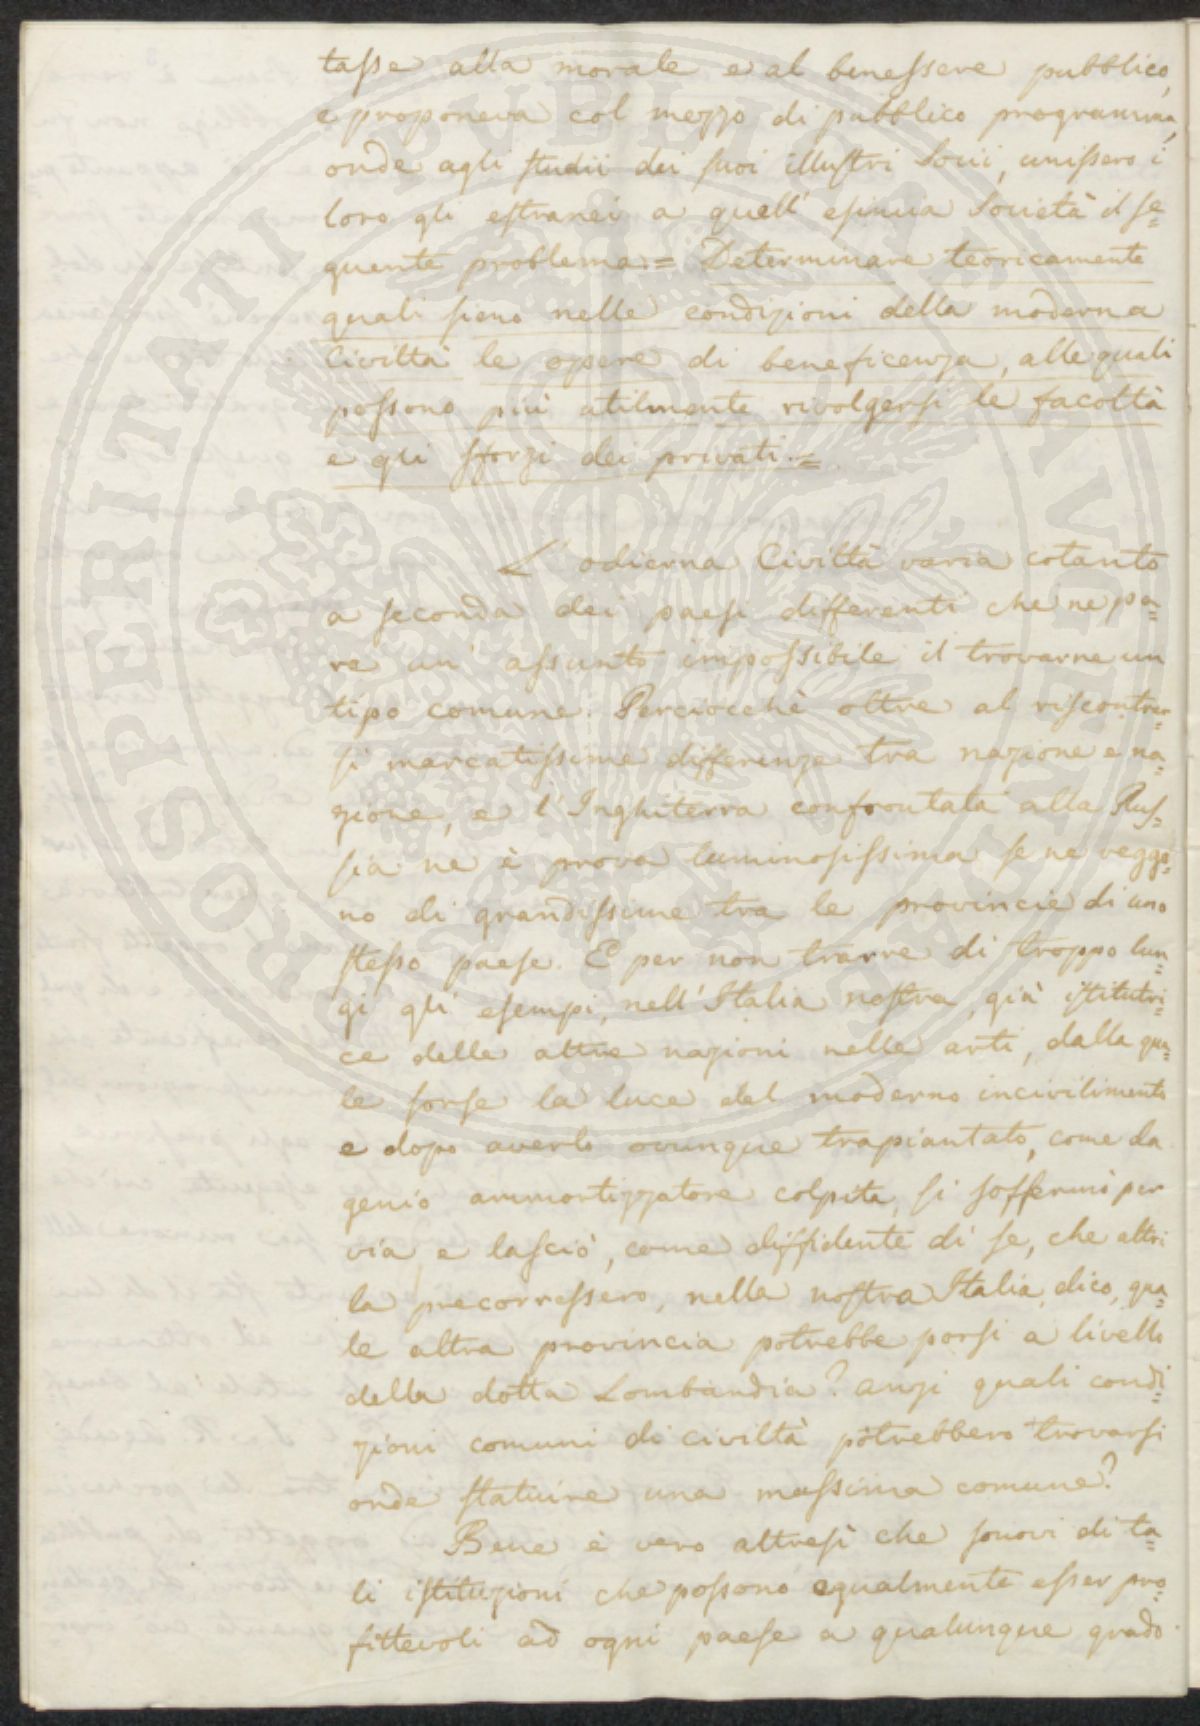 tasse alla morale e al benessere pubblico,
e proponeva col mezzo di pubblico programma,
onde agli studii dei suoi illustri Socii, unissero i
loro gli estranei a quell' esimia Società il se=
guente problema = Determinare teoricamente
quali sieno nelle condizioni della moderna
Civiltà le opere di beneficenza, alle quali
possono più utilmente rivolgersi le facoltà
e gli sforzi dei privati. =
L' odierna Civiltà varia cotanto
a seconda dei paesi differenti che ne pa=
re un' assunto impossibile il trovarne un
tipo comune. Perciocchè oltre al riscontrar=
si marcatissime differenze tra nazione e na=
zione, e l' Inghilterra confrontata alla Rus=
sia ne è prova luminosissima se ne veggo=
no di grandissime tra le provincie di uno
stesso paese. E per non trarre di troppo lun=
gi gli esempi, nell' Italia nostra, già istitutri=
ce delle altre nazioni nelle arti, dalla qua=
le sorse la luce del moderno incivilimento
e dopo averlo ovunque trapiantato, come da
genio ammortizzatore colpita, si soffermò per
via e lasciò, come diffidente di se, che altri
la precorressero, nella nostra Italia, dico, qua=
le altra provincia potrebbe porsi a livello
della dotta Lombardia? anzi quali condi=
zioni comuni di civiltà potrebbero trovarsi
onde statuire una massima comune?
Bene è vero altresì che sonovi di ta=
li istituzioni che possono egualmente esser pro=
fittevoli ad ogni paese a qualunque grado
PROSPERITATI PUBLICAE AUGENDAE